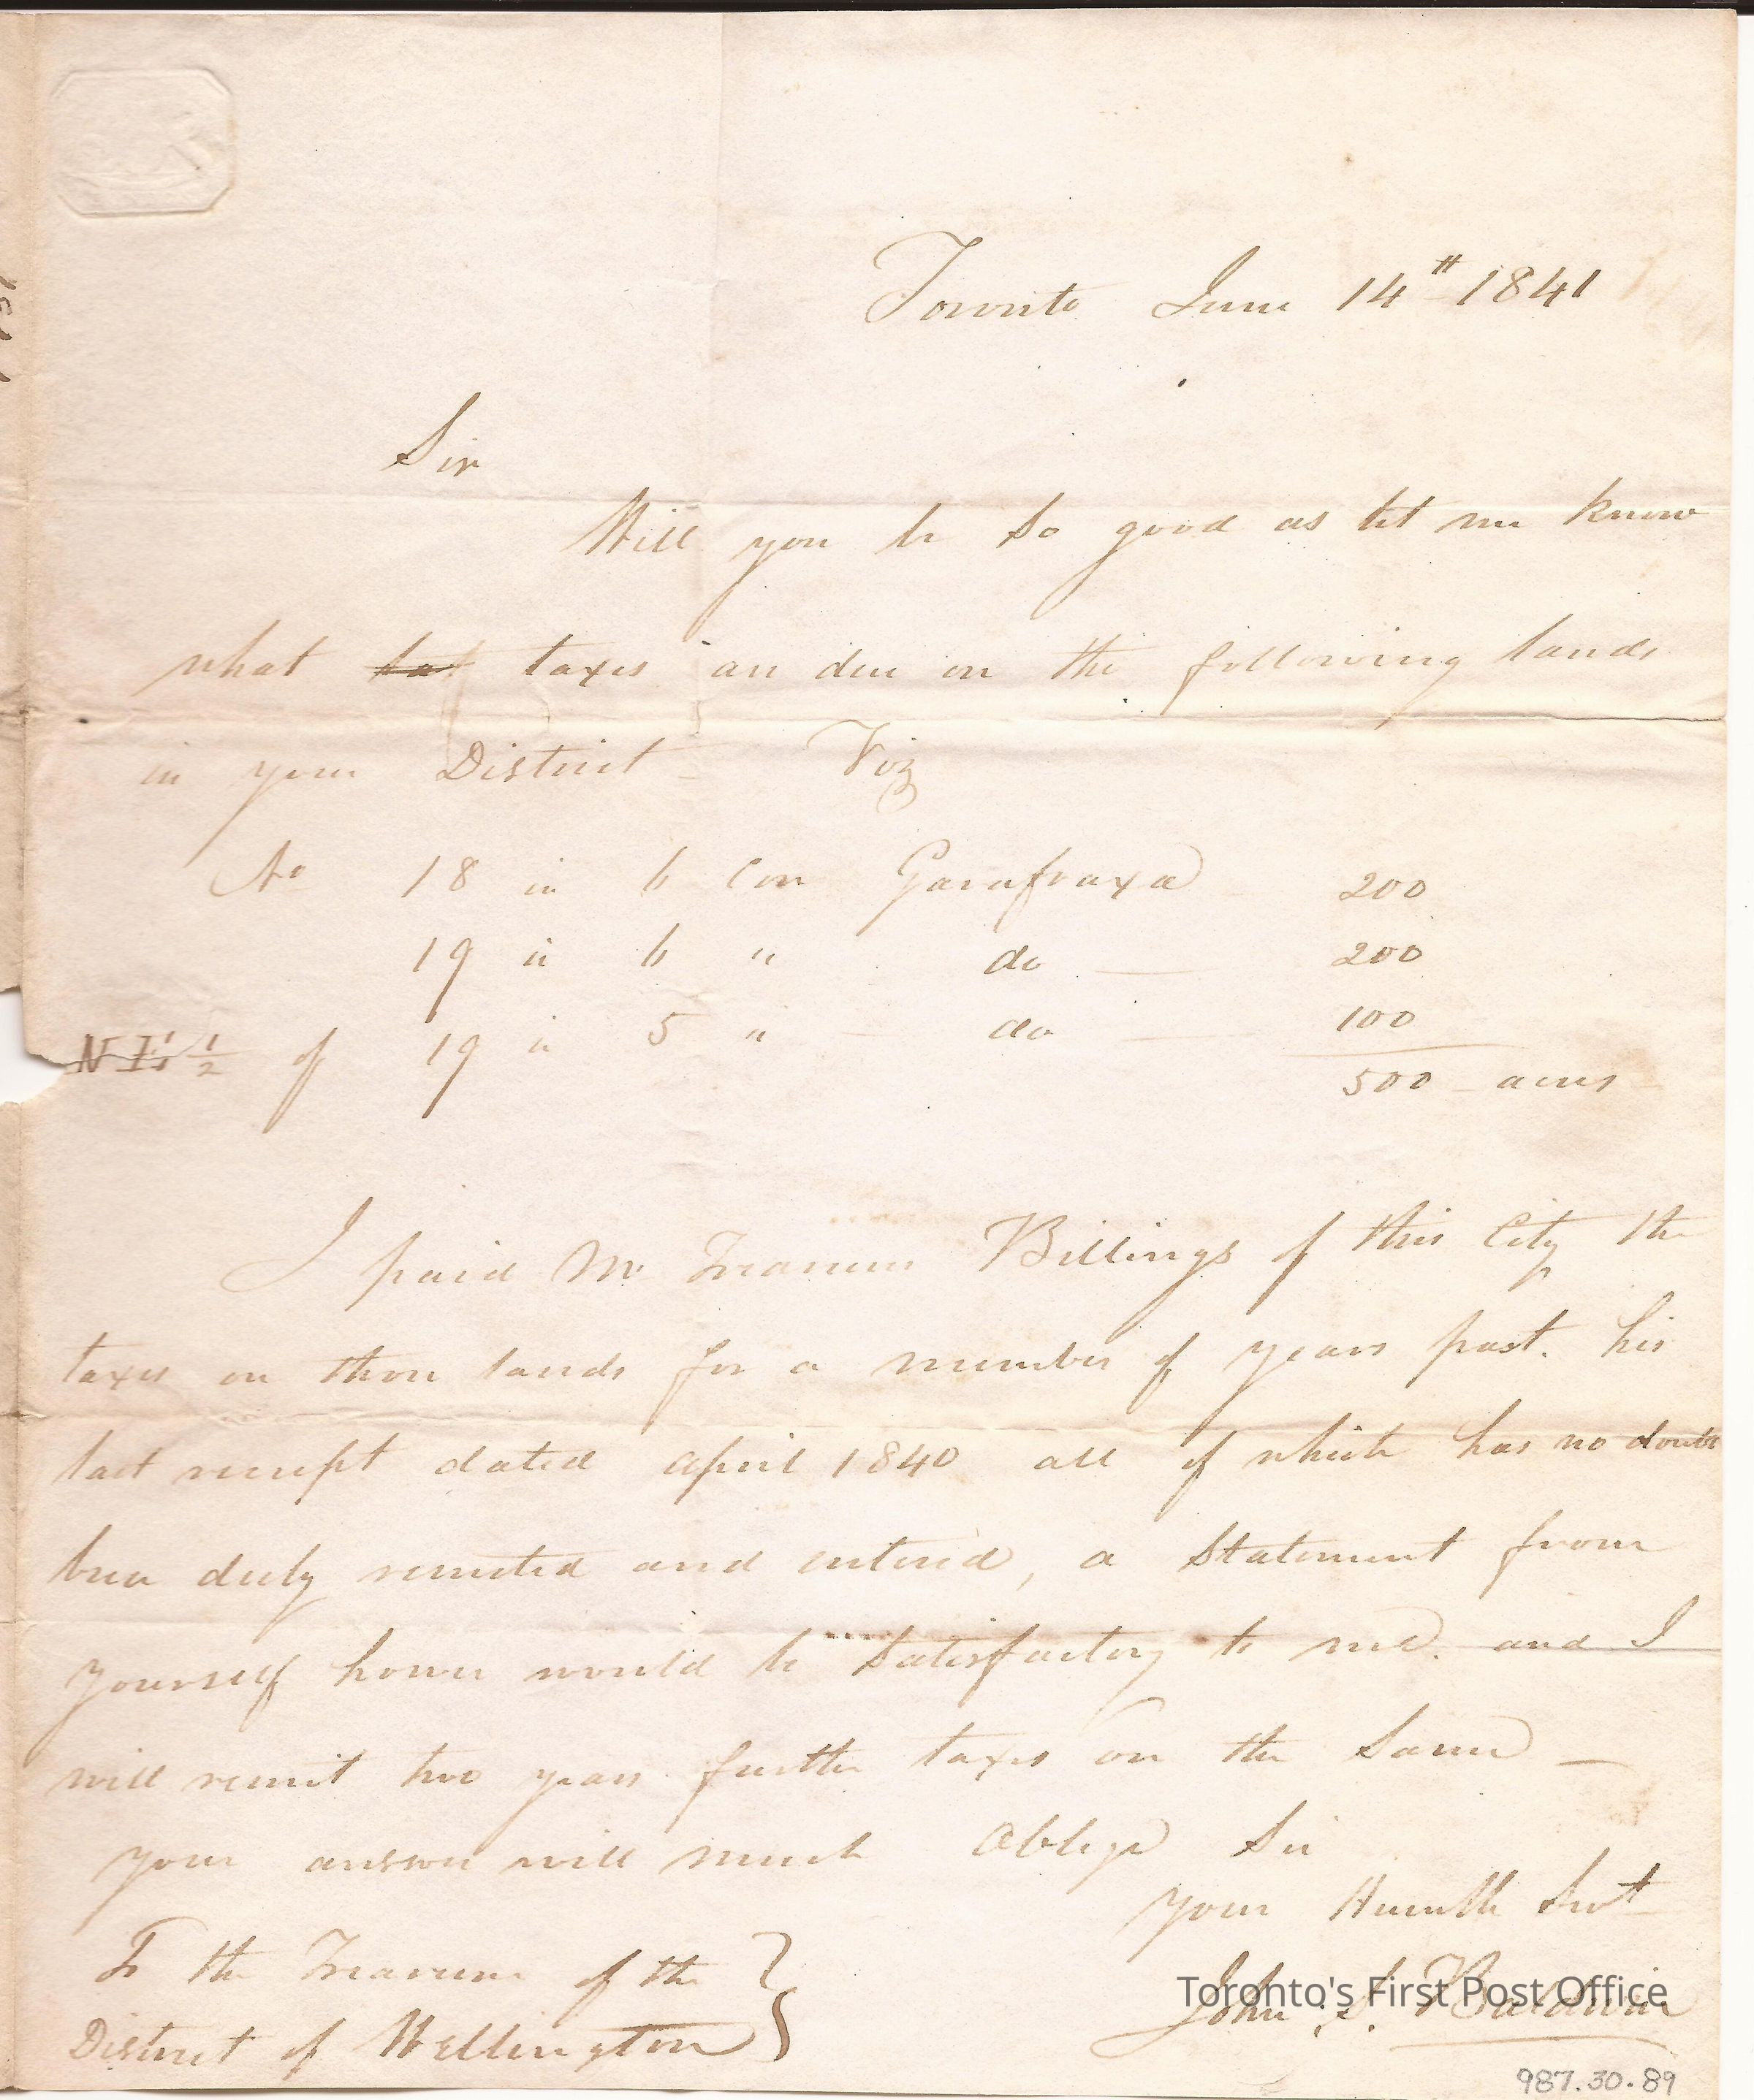 Toronto June 14th 1841
Sir
Will you be so good as let me know
what taxes are due on the following lands
in your District Viz
No 18 in 6 Con Garafraxa 200
19 in 6 " do — 200
N E 1/2 of 19 in 5 " — do — 100
500 acres
I paid Mr Treasurer Billings of this City the
taxes on those lands for a number of years past. his
last receipt dated April 1840 all of which has no doubt
been duly remitted and entered, a Statement from
yourself however would be Satisfactory to me. and I
will remit two years further taxes on the Same —
your answer will much Oblige Sir
your Humble Svt
John S. Baldwin
To the Treasurer of the
District of Wellington
Toronto's First Post Office
987.30.89